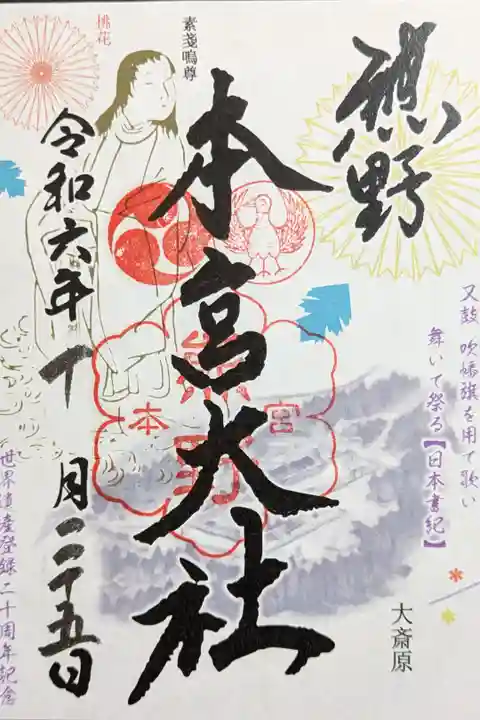 熊野
又鼓 吹幡旗を用て歌い
舞いて祭る【日本書紀】
大斎原
本宮大社
素戔嗚尊
桃花
令和六年十月二十五日
世界遺産登録二十周年記念
熊野
本宮